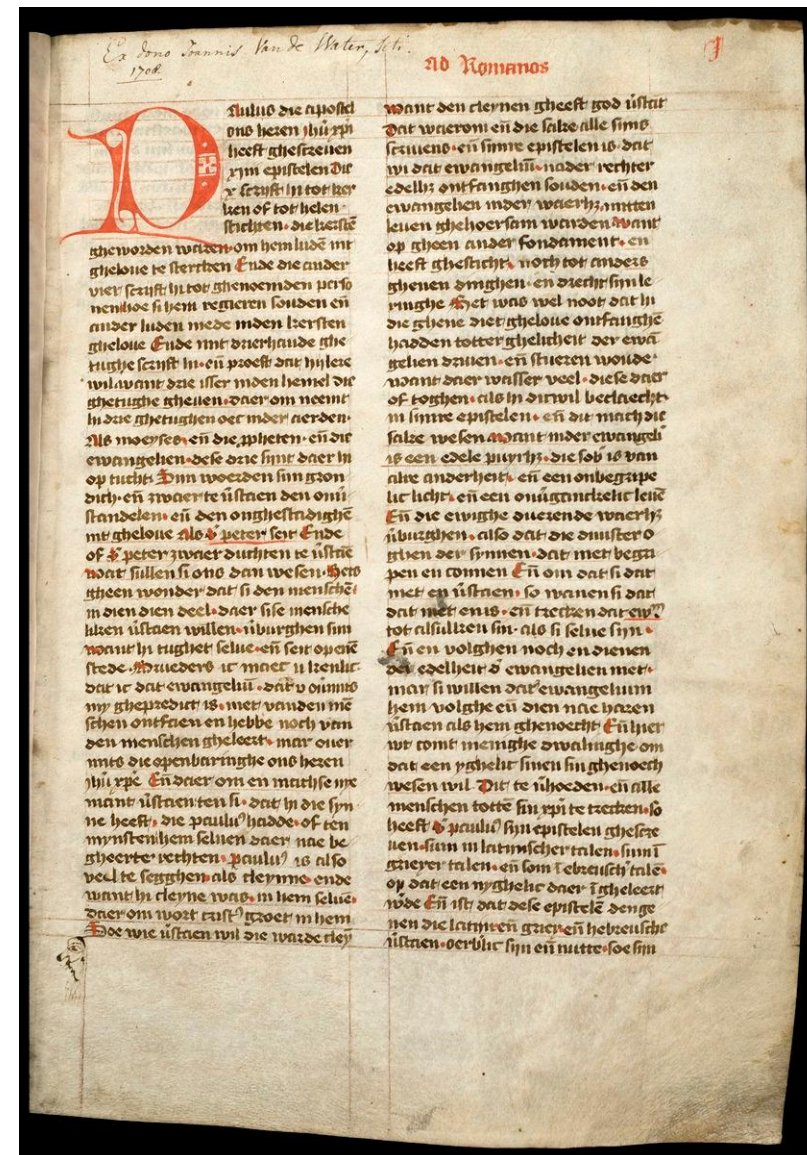 Ex dono Joannis Van de Water,
1708
ad Romanos
Paulus die apostel
ons heren ihū xpi
heeft ghescreuen
xiiij epistelen Die
x scrijft hi tot ker
ken of tot helen
stichten· die kerstē
gheworden waren· om hem ludē int
gheloue te stercken Ende die ander
vier scrijft hi tot ghenoemden perso
nen hoe si hem regieren souden eñ
ander luden mede inden kersten
gheloue Ende mit drierhande ghe
tughe scrijft hi· eñ proeft dat hi lere
wil want drie isser inden hemel die
ghetughe gheuen· daer om neemt
hi drie ghetughen oec inder aerden·
Als moeyses· eñ die ꝓpheten· eñ die
ewangelien· dese drie sijnt daer hi
op tucht· Sijn woerden sijn gron
dich· eñ zwaer te v̄staen den onū
standelen· eñ den onghestadighē
int gheloue Als S peter seit Ende
of S peter zwaer duchten te v̄staē
wat sullen si ons dan wesen· Hets
gheen wonder dat si den menschē
in dien dien deel· daer si se mensche
liken v̄staen willen· v̄burghen sijn
want hi tughet selue· eñ seit opene
stede· Brueders ic maec u kenlic
dat ic dat ewangeliū· dat v ouūmts
my ghepredict is· niet vanden mē
schen ontfaen en hebbe noch van
den menschen gheleert· mar ouer
mits die openbaringhe ons heren
ihū xpē. Eñ daer om en machse nye
mant v̄staen ten si· dat hi die syn
ne heeft· die paulus hadde· of ten
mynsten hem seluen daer nae be
gheerter rechten· paulus is also
veel te segghen als cleynne· ende
want hi cleyne was· in hem selue·
daer om wort crist⁹ groet in hem
Soe wie v̄staen wil die warde cley
want den cleynen gheeft god v̄stāt
Dat waerom eñ die sake alle sijns
scriuens· eñ sinre epistelen is· dat
wi dat ewangeliū· nader rechter
edelhz ontfanghen souden· eñ den
ewangelien inder waerhz· mitten
leuen ghehoersam warden want
op gheen ander fondament· en
heeft ghesticht· noch tot anders
ghenen dinghen· en drecht sijn le
ringhe Het was wel noot dat hi
die ghene diet gheloue ontfanghē
hadden totter ghelicheit der ewā
gelien driuen· eñ stueren woude·
want daer wasser veel· diese daer
of toghen· als hi dicwil beclaecht·
in sinre epistelen· eñ dit mach die
sake wesen want inder ewangeli
is een edele puyrhz· die sob is van
alre anderheit· eñ een onbegripe
lic licht· eñ een onū̄ganckelic leuē
Eñ die ewighe duerende waerhz
v̄burghen· also dat die duuster o
ghen der synnen· dat niet begri
pen en connen Eñ om dat si dat
niet en v̄staen· so wanen si dat
dat niet en is· eñ trecken dat
tot alsulken sin· als si selue sijn·
Eñ en volghen noch en dienen
der edelheit d ewangelien niet·
mar si willen dat ewangelium
hem volghe eñ dien nae haren
v̄staen als hem ghenoecht Eñ hier
wt comt menighe dwalinghe om
dat een yghelic sinen sin ghenoech
wesen wil Dit te v̄hoeden· eñ alle
menschen tottē sin xpī te trecken· so
heeft S paulus sijn epistelen ghescre
uen· sijm in latijnscher talen· sijm ī
griexer talen· eñ som ī ebreuscē talē·
op dat een nyghelic daer ī gheleert
w̄de Eñ ist· dat dese epistelē denge
nen die latijn eñ griex eñ hebreusche
v̄staen· oerb̄lic sijn eñ nutte· soe sijn